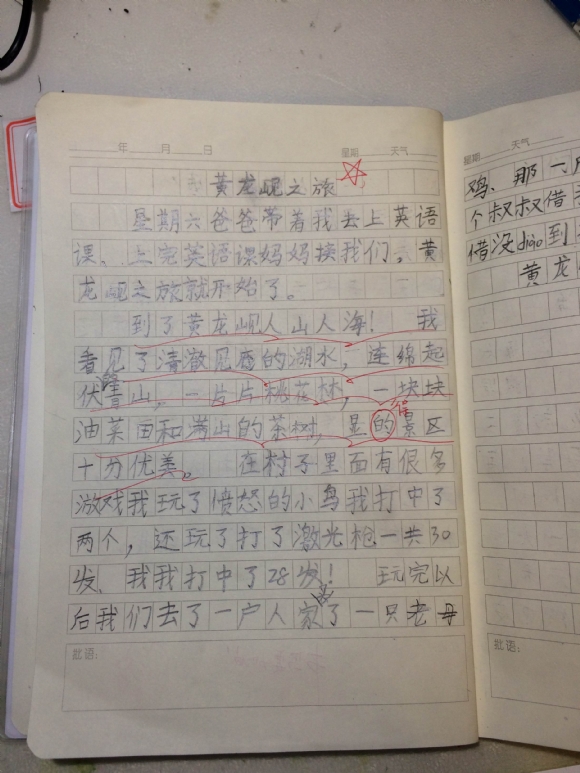 年 月 日 星期 天气
黄龙岘之旅
星期六爸爸带着我去上英语
课、上完英语课妈妈接我们,黄
龙岘之旅就开始了。
到了黄龙岘人山人海! 我
看见了清澈见底的湖水,连绵起
伏青山,一片片桃花林,一块块
油菜田和满山的茶树,显的景区
十分优美。 在村子里面有很多
游戏我玩了愤怒的小鸟我打中了
两个,还玩了打了激光枪一共30
发、我我打中了28发! 玩完以
后我们去了一户人家了一只老母
批语:
星期 天气
鸡、那一
个叔叔借
借没diao到
黄龙
批语: